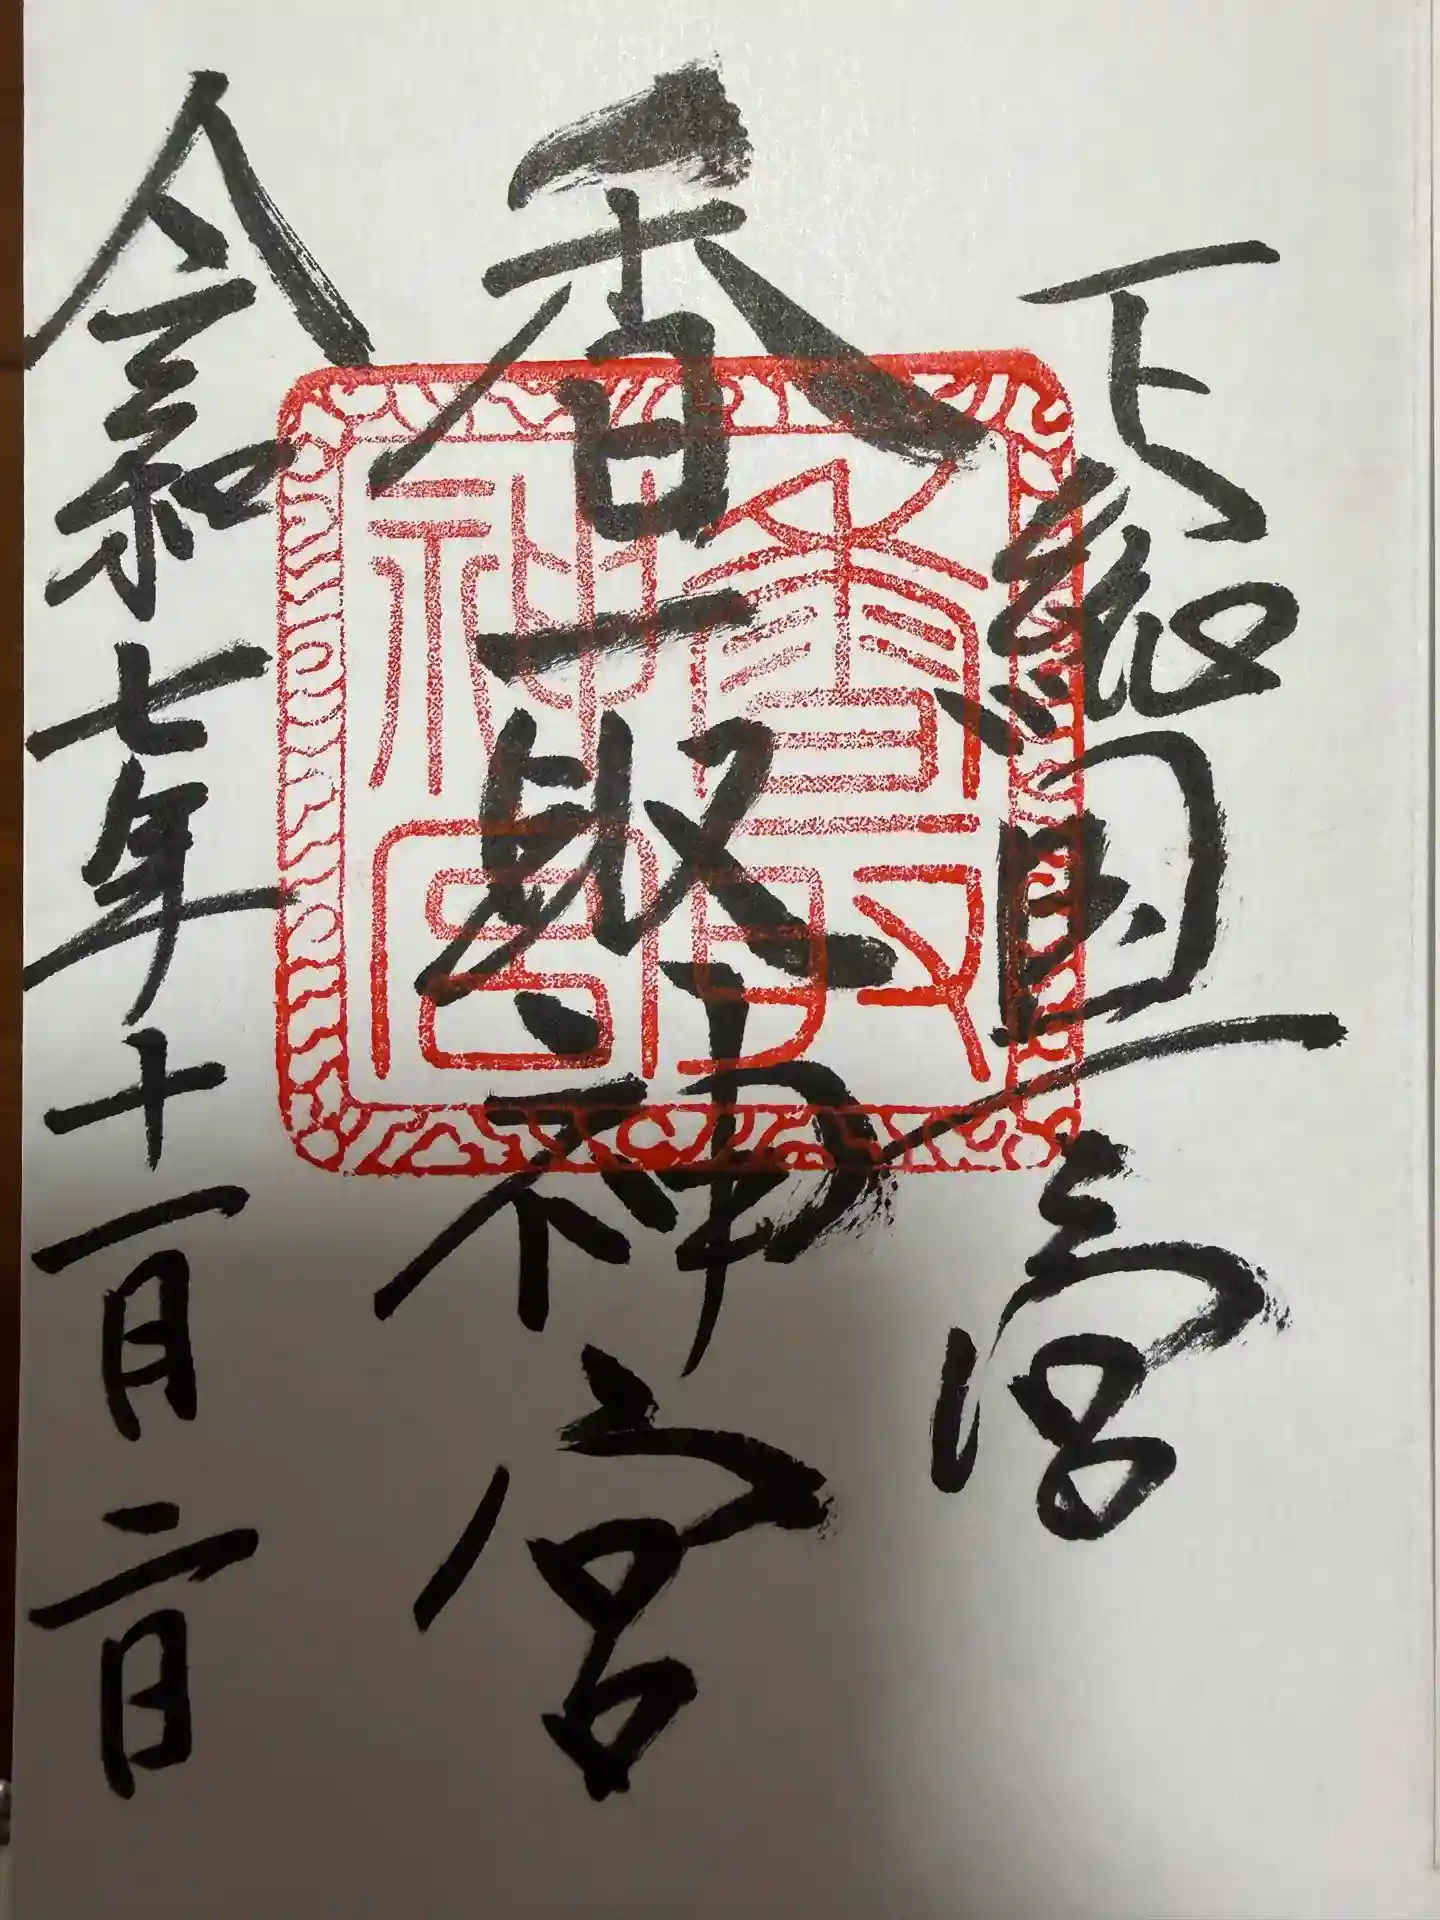 下総国一宮
香取神宮
香取神宮
令和七年十一月二日